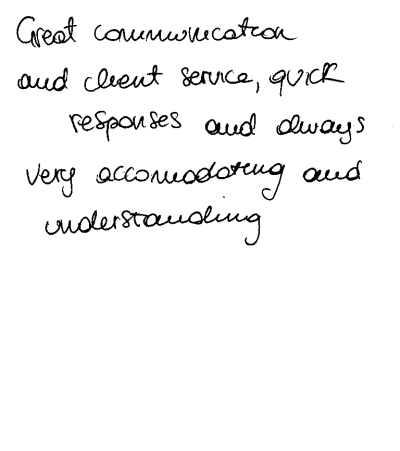 Great communication
and client service, quick
responses and always
very accomodating and
understanding